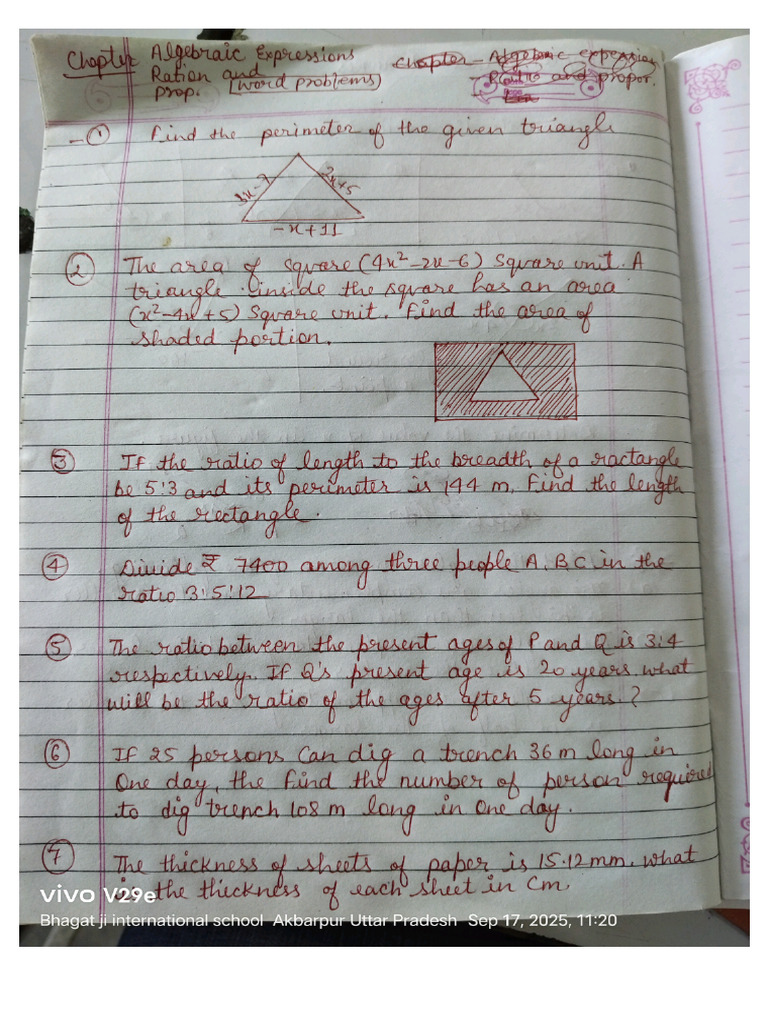 Chapter Algebraic Expressions
Ration and
prop. [word problems]
chapter - Algebraic expession
Ratio and propor.
① Find the perimeter of the given triangle
3x-7
2x+5
-x+11
② The area of square (4x²-2x-6) Square unit. A
triangle inside the square has an area
(x²-4x+5) Square unit. Find the area of
shaded portion.
③ If the ratio of length to the breadth of a ractangle
be 5:3 and its perimeter is 144 m. Find the length
of the rectangle.
④ Divide ₹ 7400 among three people A, B, C in the
ratio 3:5:12
⑤ The ratio between the present ages of P and Q is 3:4
respectively. If Q's present age is 20 years. what
will be the ratio of the ages after 5 years.?
⑥ If 25 persons can dig a trench 36 m long in
One day, the find the number of person required
to dig trench 108 m long in one day.
⑦ The thickness of sheets of paper is 15.12 mm. what
is the thieckness of each sheet in Cm.
vivo V29e
Bhagat ji international school Akbarpur Uttar Pradesh Sep 17, 2025, 11:20